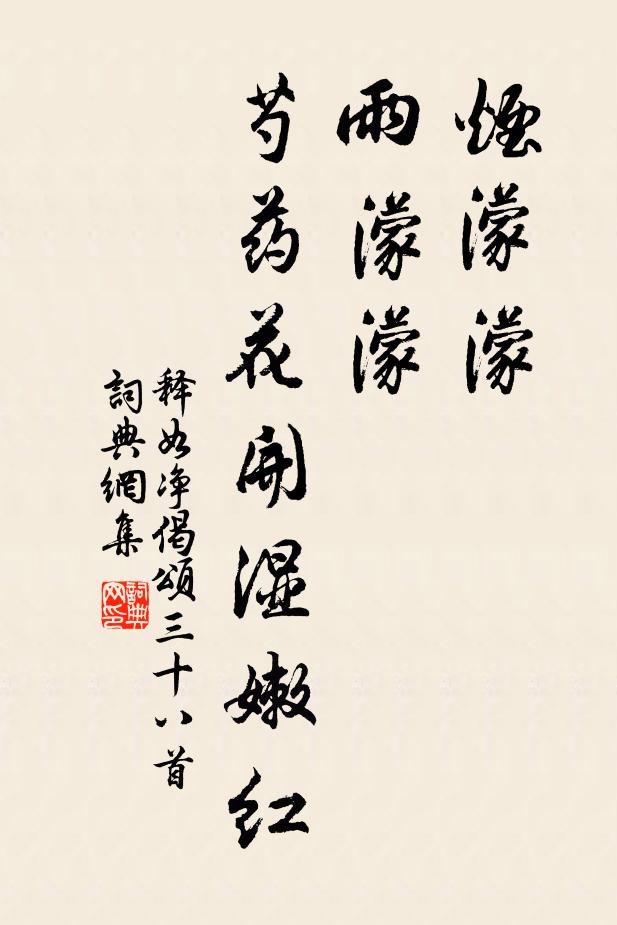 煙濛濛
雨濛濛
芍药花開湿嫩红
释如净偈頌三十八首
詞典網集
詞典网印